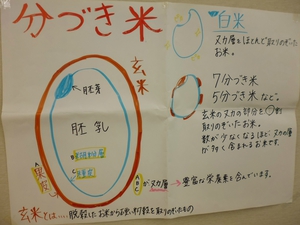 分づき米
白米
ヌカ層をほとんど取りのぞいた
お米。
7分づき米
5分づき米 など。
玄米のヌカの部分を
取りのぞいたお米。
数が少なくなるほど、ヌカの層
が多く含まれるお米です。
玄米
胚芽
胚乳
A
B
C
ABC
がヌカ層
→豊富な栄養素を含んでいます。
玄米とは…脱穀したお米からもみ殻を取りのぞいたもの